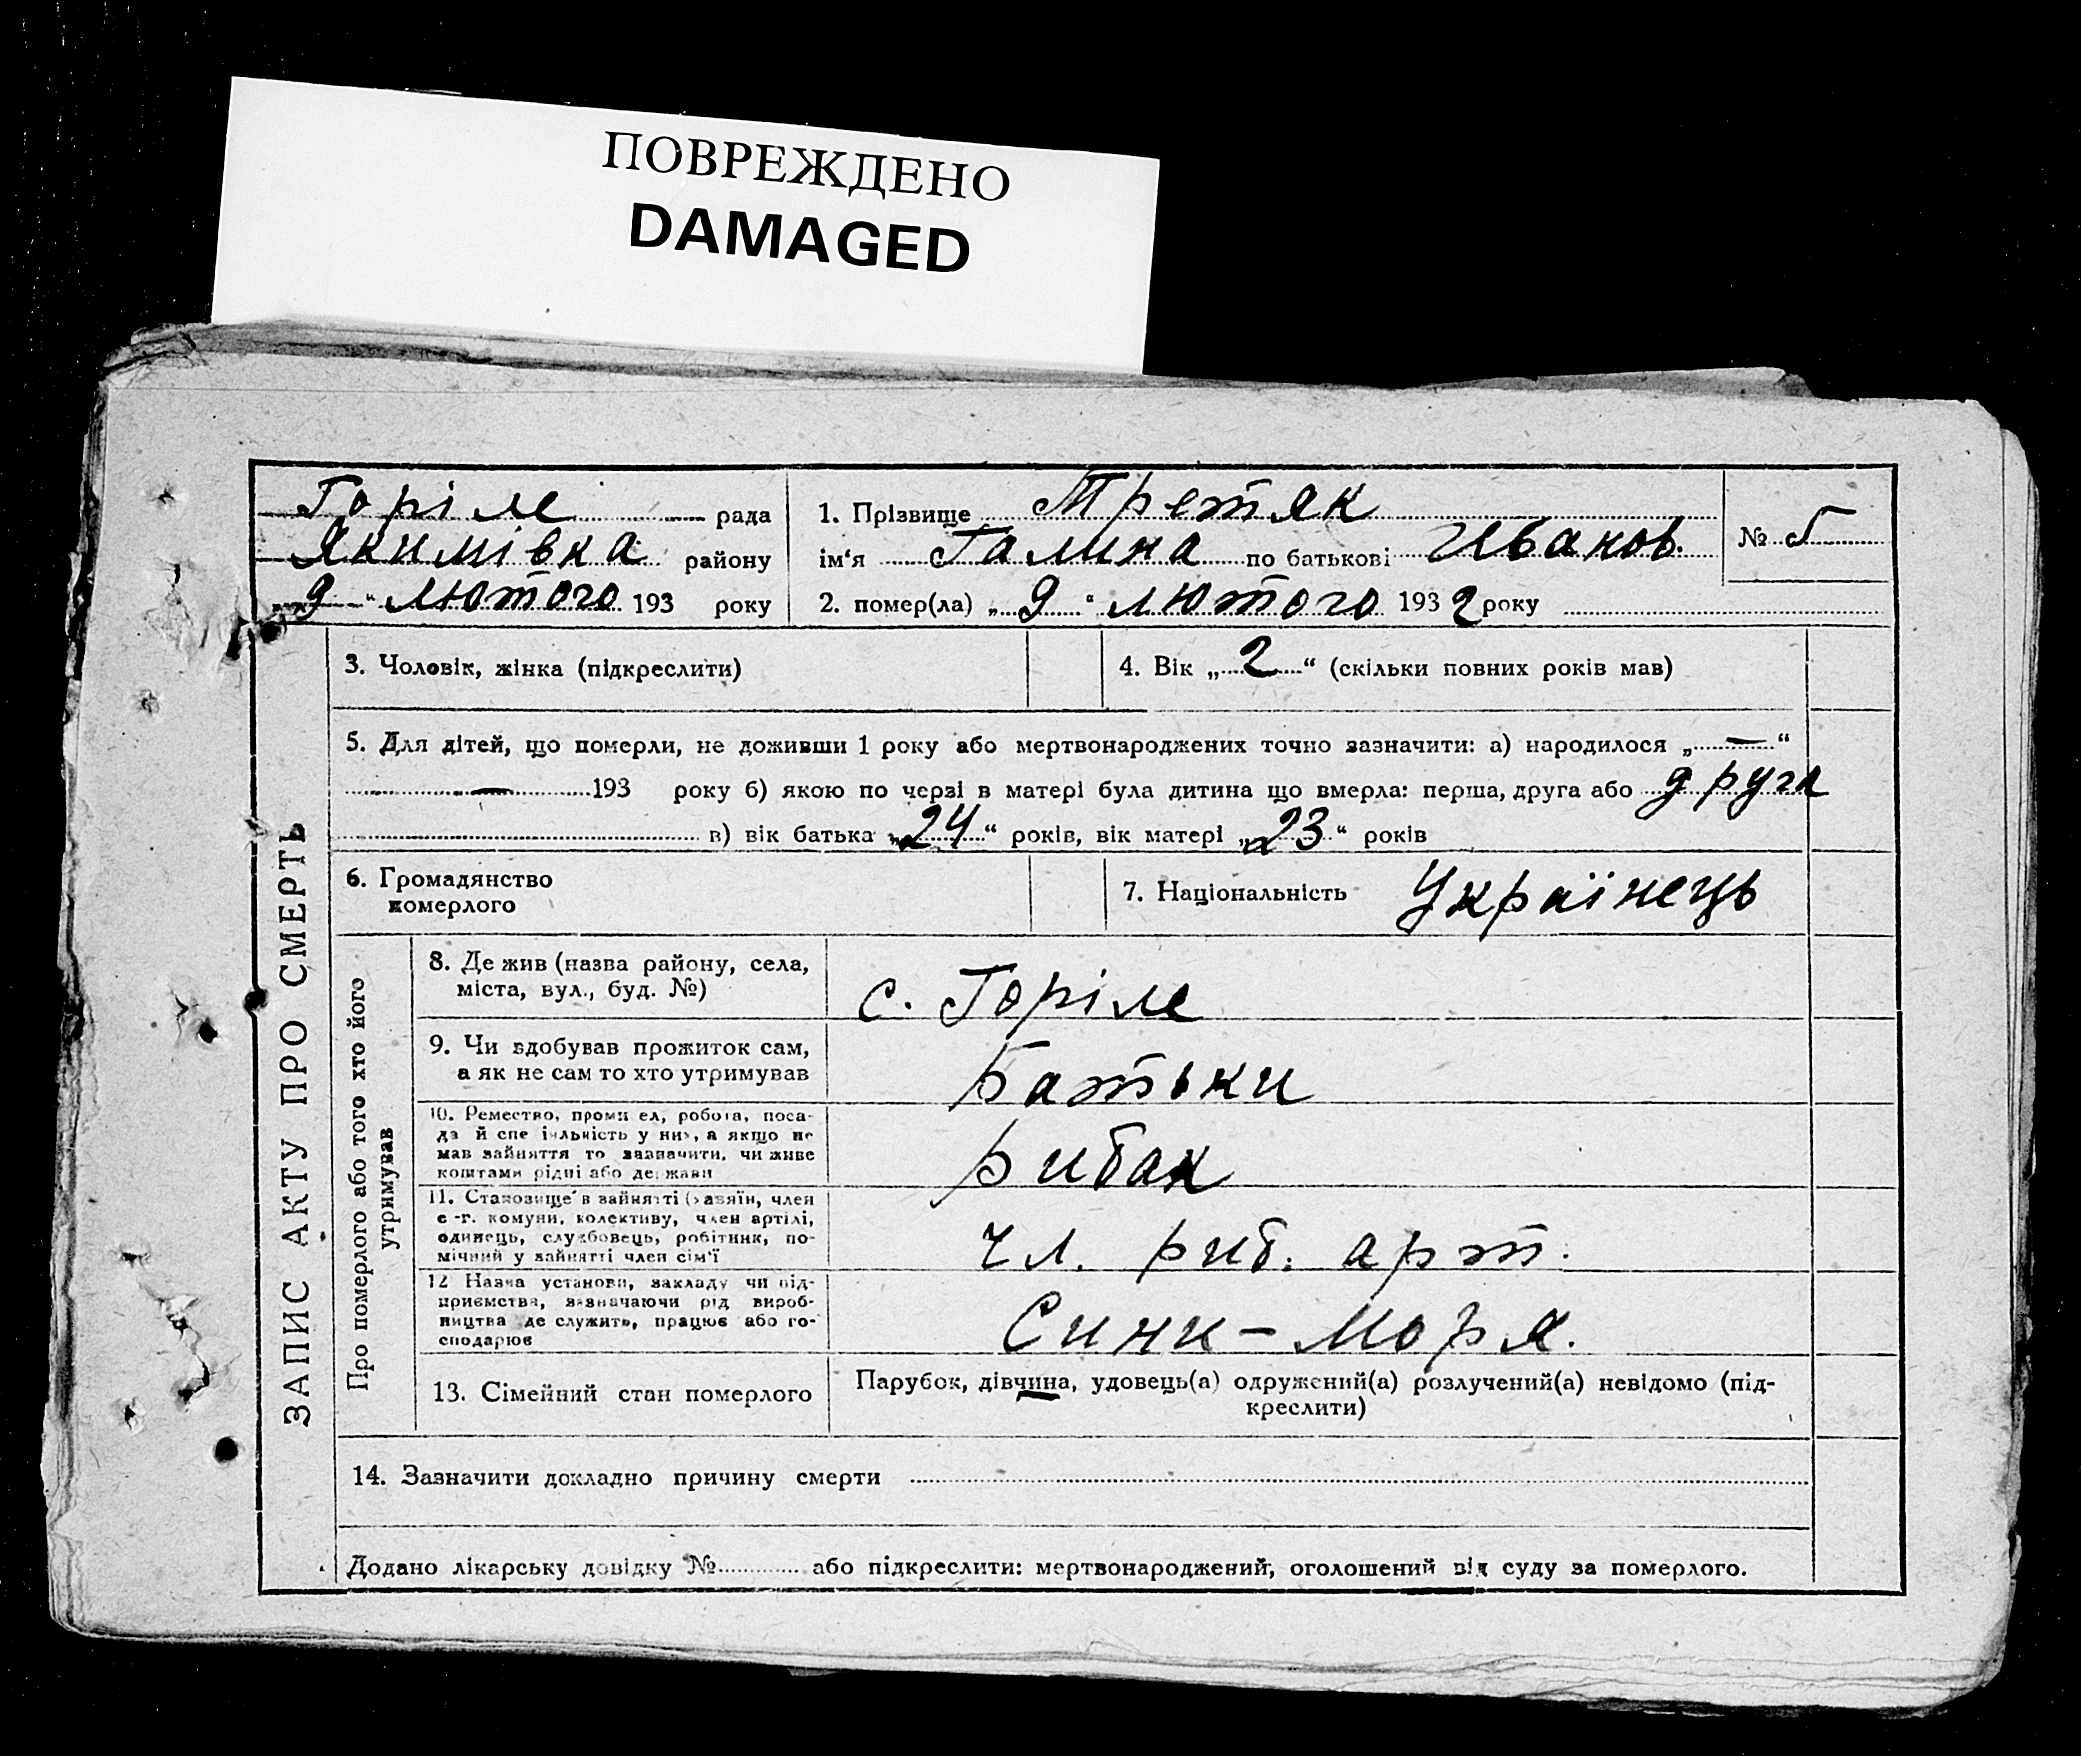 ПОВРЕЖДЕНО
DAMAGED
Горіле рада
Якимівка району
„9“ лютого 193 року
1. Прізвище Третяк
ім‘я Галина по батькові Иванов.
№ 5
2. помер(ла) „9“ лютого 1932 року
ЗАПИС АКТУ ПРО СМЕРТЬ
3. Чоловік, жінка (підкреслити)
4. Вік „2“ (скільки повних років мав)
5. Для дітей, що померли, не доживши 1 року або мертвонароджених точно зазначити: а) народилося „—“
— 193 року б) якою по черзі в матері була дитина що вмерла: перша, друга або друга
в) вік батька „24“ років, вік матері „23“ років
6. Громадянство
померлого
7. Національність Українець
Про померлого або того хто його
утримував
8. Де жив (назва району, села,
міста, вул., буд. №)
с. Горіле
9. Чи здобував прожиток сам,
а як не сам то хто утримував
Батьки
10. Ремество, промисел, робота, поса-
да й спеціяльність у них, а якщо не
мав зайняття то зазначити, чи живе
коштами рідні або держави
Рибак
11. Становище в зайнятті (хазяїн, член
с.-г. комуни, колективу, член артілі,
одинець, службовець, робітник, по-
мічний у зайнятті член сім‘ї
чл. риб. арт.
12 Назва установи, закладу чи під-
приємства, зазначаючи рід вироб-
ництва де служить, працює або го-
сподарює
Сини-Моря.
13. Сімейний стан померлого
Парубок, дівчина, удовець(а) одружений(а) розлучений(а) невідомо (під-
креслити)
14. Зазначити докладно причину смерти
Додано лікарську довідку № або підкреслити: мертвонароджений, оголошений від суду за померлого.